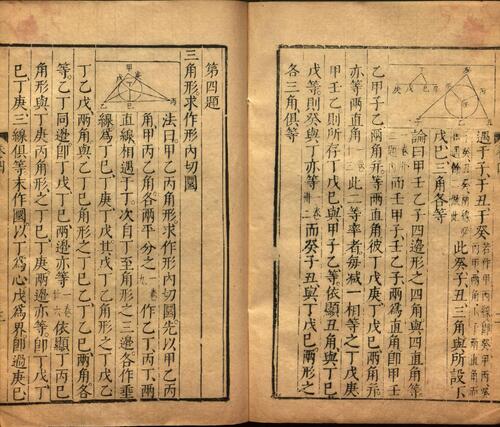 遇于子于丑于癸若作甲丙線即甲丙癸
此癸子丑三角與所設丁
戊己三角各等
論曰甲壬乙子四邊形之四角與四直角
而壬甲子壬乙子兩為直角即甲壬
乙甲子乙兩角亦等兩直角彼丁戊庚丁戊己兩角亦
亦等兩直角此二等率者每減一相等之丁戊庚
甲壬乙則所存丁戊己與甲子乙等依顯丑角與丁己
戊等則癸與丁亦等而癸子丑與丁戊己兩形之
各三角俱等
第四題
三角形求作形內切圜
法曰甲乙丙角形求作形內切圜先以甲乙丙
角甲丙乙角各兩平分之作乙丁丙丁兩
直線相遇于丁次自丁至角形之三邊各作垂
線為丁己丁庚丁戊其戊丁乙角形之丁戊乙
丁乙戊兩角與乙丁己角形之丁己乙丁乙己兩角各
等乙丁同邊即丁戊丁己兩邊亦等依顯丁丙己
角形與丁庚丙角形之丁己丁庚兩邊亦等即丁戊丁
己丁庚三線俱等末作圜以丁為心戊為界即過庚己